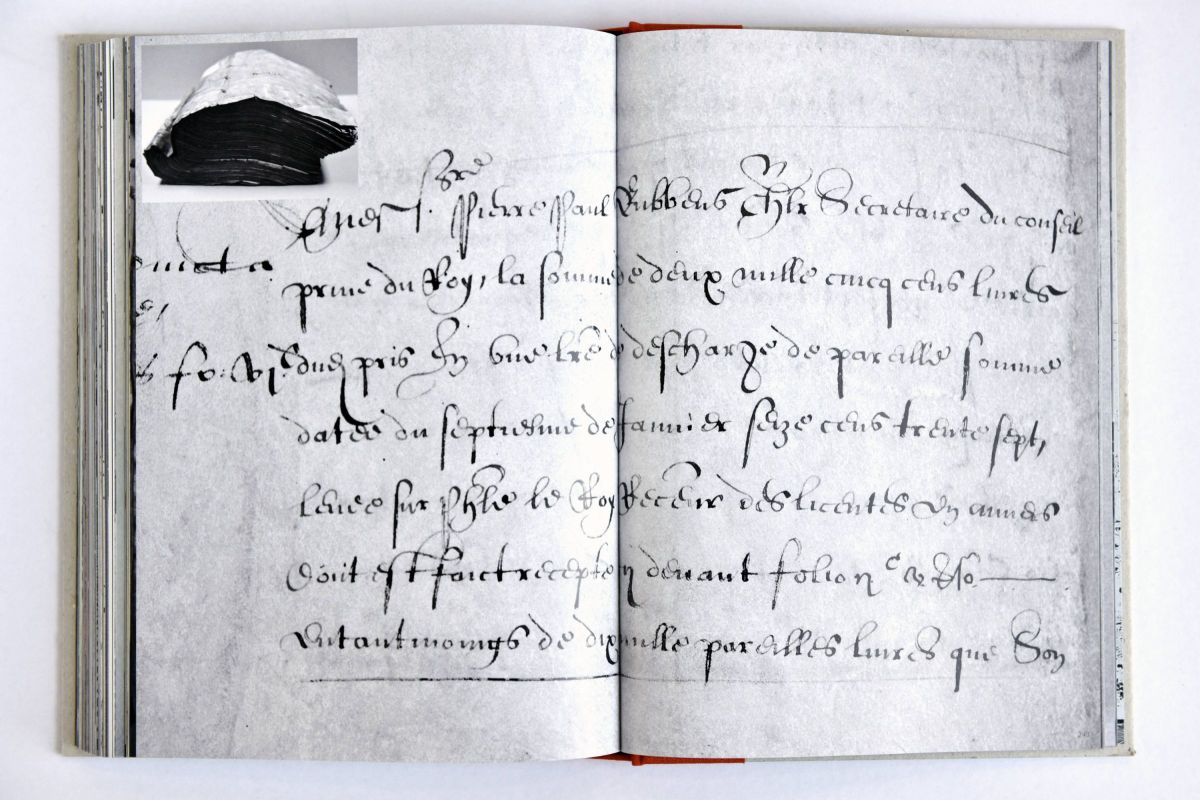 Sre
Pierre Paul Rubbens Chlr Secretaire du conseil
prive du Roy, la somme de deux mille cincq cens livres
pris En vne lre de descharge de pareille somme
datee du septiesme de Janvier seize cens trente sept,
levee sur Phle le Roy Receveur des licentes En anvers
Dont est faict recepte cy devant folio
Entantmoings de dix mille pareilles livres que Son